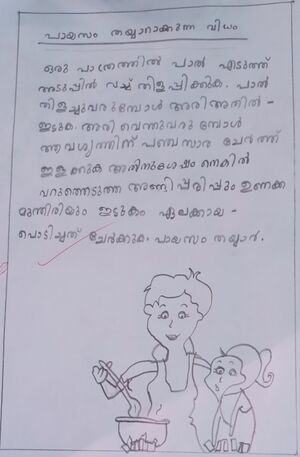 പായസം തയ്യാറാക്കുന്ന വിധം
ഒരു പാത്രത്തിൽ പാൽ എടുത്ത്
അടുപ്പിൽ വച്ച് തിളപ്പിക്കുക. പാൽ
തിളച്ചുവരുമ്പോൾ അരി അതിൽ -
ഇടുക. അരി വെന്തുവരുമ്പോൾ
ആവശ്യത്തിന് പഞ്ചസാര ചേർത്ത്
ഇളക്കുക അതിനുശേഷം നെയിൽ
വറുത്തെടുത്ത അണ്ടിപ്പരിപ്പും ഉണക്ക
മുന്തിരിയും ഇടുകം ഏലക്കായ -
പൊടിച്ചത് ചേർക്കുക. പായസം തയ്യാർ.